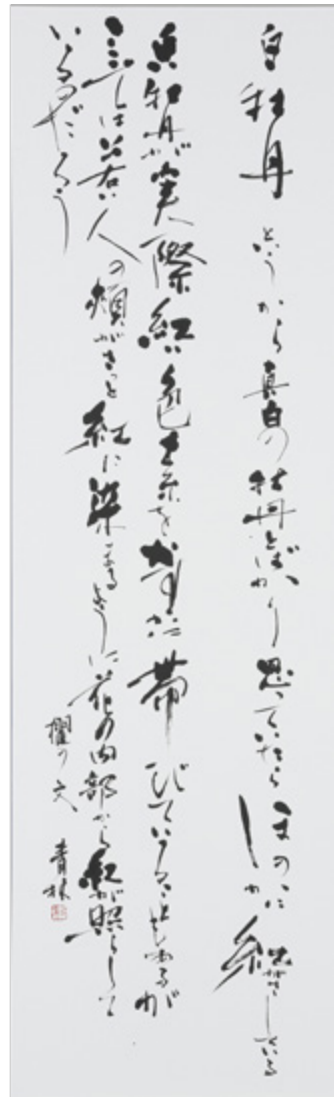 白牡丹というから真白の牡丹とばかり思っていたらほのかに紅がさしている
白牡丹が実際紅い色素をかすかに帯びていることもあるが
若い人の頬がさっと紅に染まるように花の内部から紅が照らして
いるのだろう
櫂の文 青林